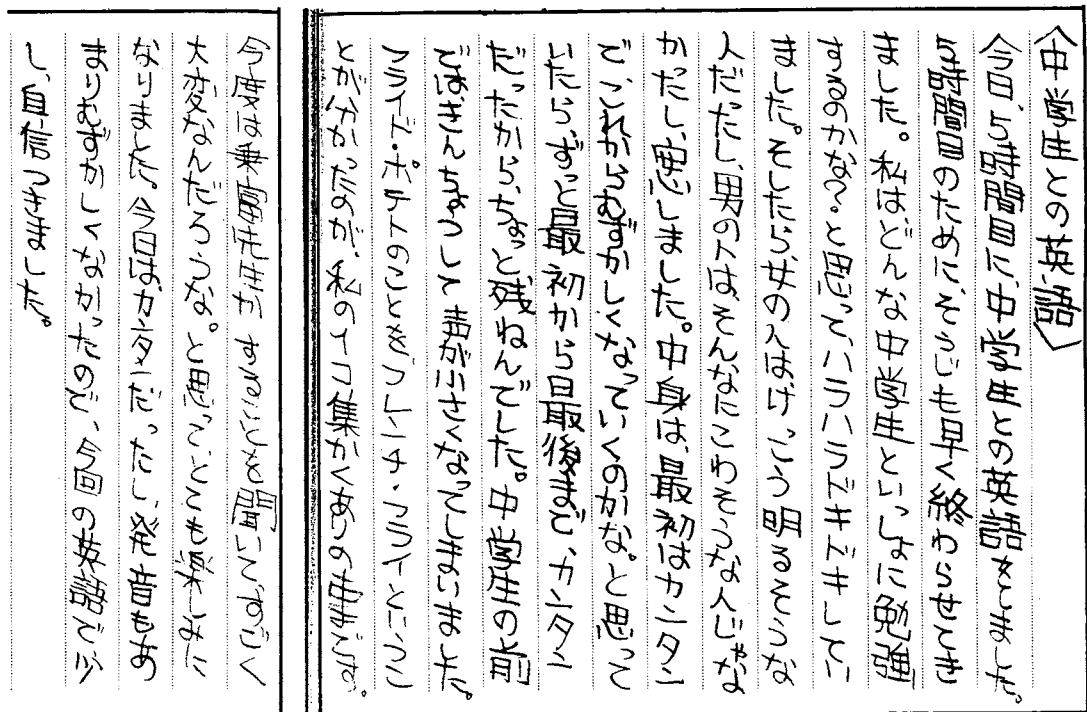 〈中学生との英語〉
今日、5時間目に、中学生との英語をしました。
5時間目のために、そうじも早く終わらせてき
ました。私はどんな中学生といっしょに勉強
するのかな?と思って、ハラハラドキドキしてい
ました。そしたら、女の人はけっこう明るそうな
人だったし、男の人は、そんなにこわそうな人じゃな
かったし、安心しました。中身は、最初はカンタン
で、これからむずかしくなっていくのかな。と思って
いたら、ずっと最初から最後まで、カンタン
だったから、ちょっと残ねんでした。中学生の前
ではきんちょうして声が小さくなってしまいました。
フライド・ポテトのことをフレンチ・フライということ
とが分かったのが、私の
今度は 先生が することを聞いて、すごく
大変なんだろうな。と思って、とても楽しみに
なりました。今日は、カンタンだったし、発音もあ
まりむずかしくなかったので、今回の英語で、少
し、自信つきました。